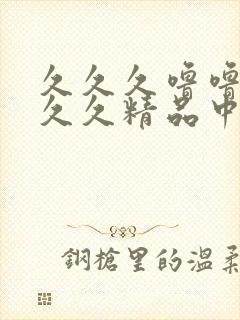 久久久噜噜
久久精品中
钢枪里的温柔